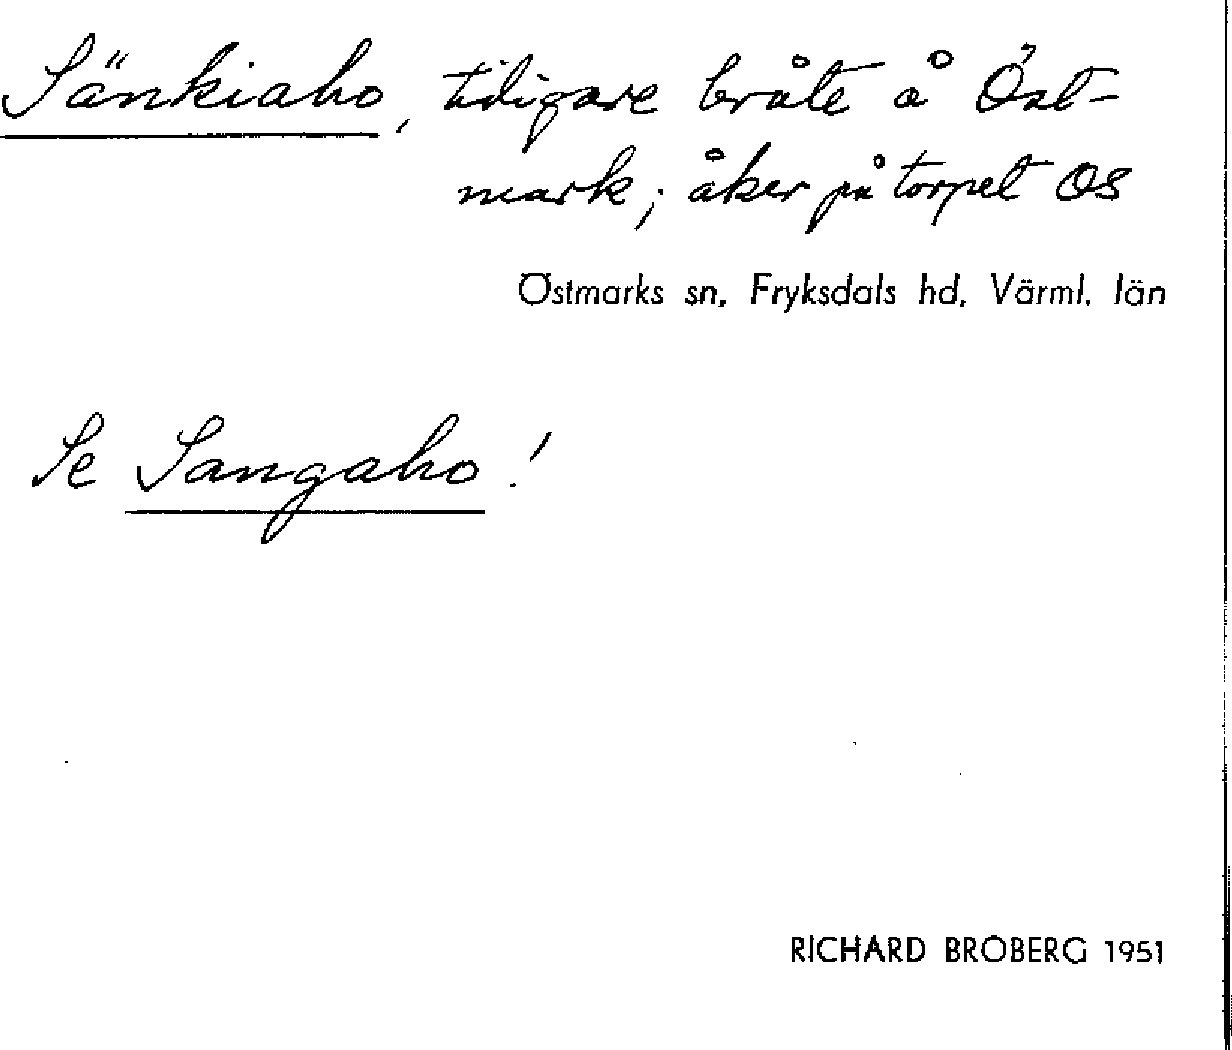 Sänkiaho, tidigare bråte å Öst-
mark; åker på torpet OS
Östmarks sn, Fryksdals hd, Värml. län
Se Sangaho!
RICHARD BROBERG 1951